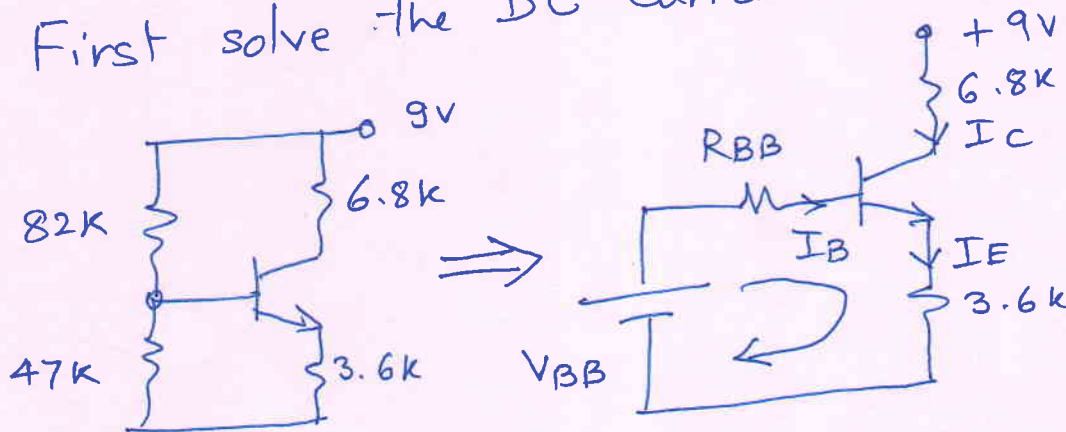 First solve the DC
9V
82K
6.8K
47K
3.6K
+9V
6.8K
IC
RBB
IB
IE
3.6K
VBB